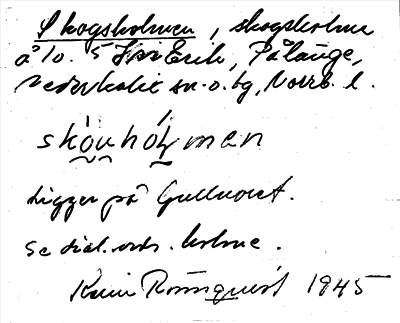 Skogsholmen, skogsholme
å lo. 5 Erik, Pålänge,
Nederkalix sn. o. tg, Norrb. l.
skóuhólmen
Ligger på Gullnäset.
Se dial. ordn. holme.
Karin Rönnqvist 1945